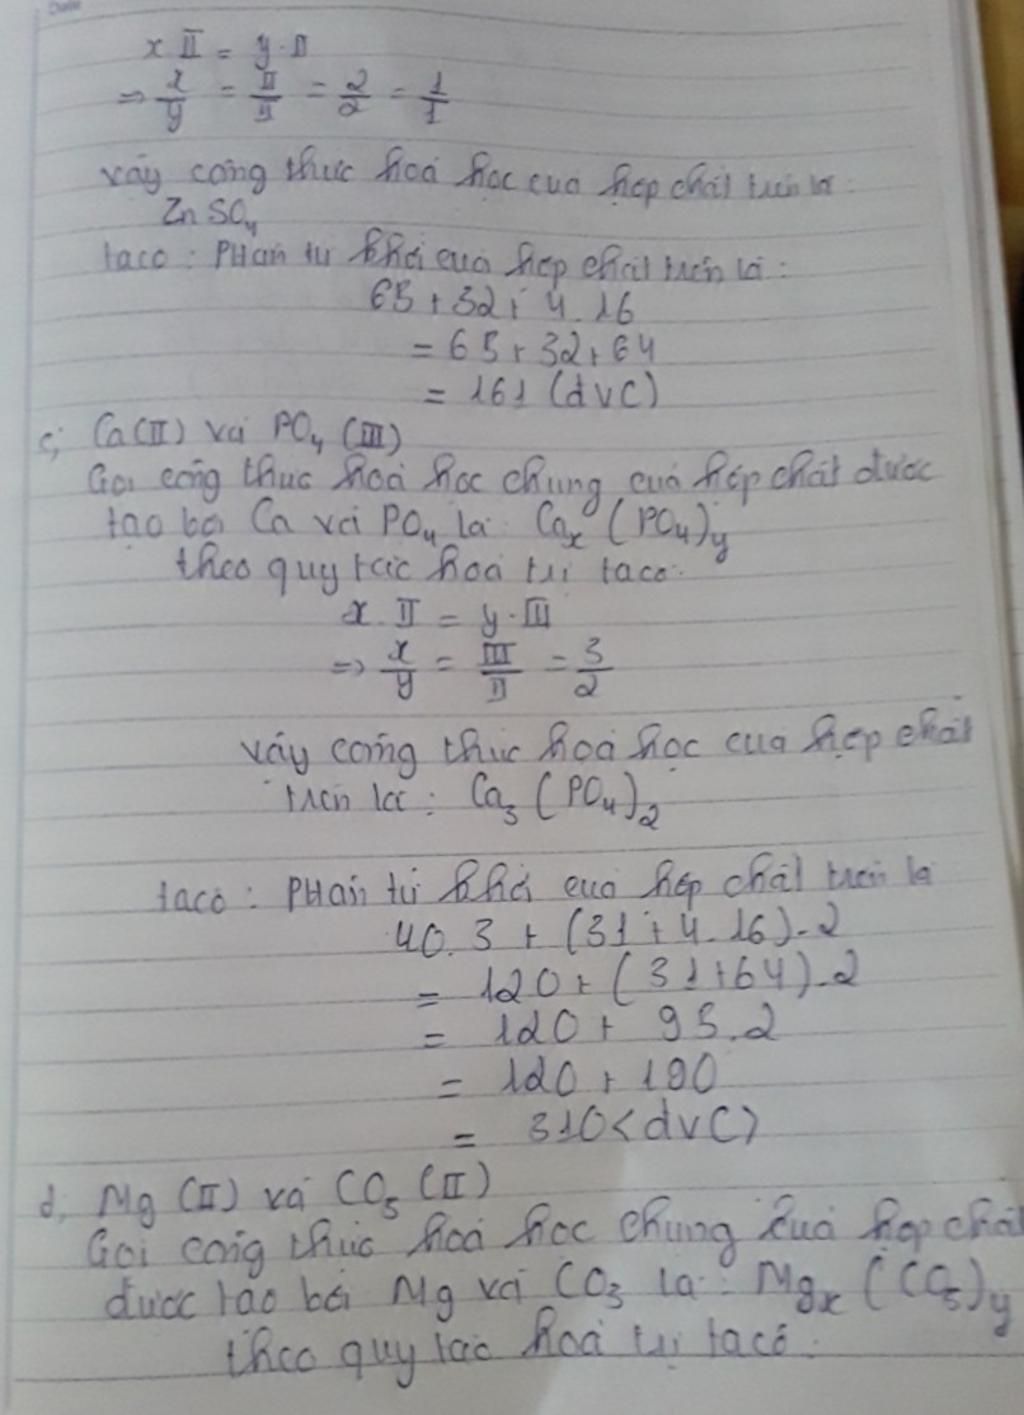 x II = y . II
=> x/y = II/II = 2/2 = 1/1
vậy công thức hoá học của hợp chất trên là :
ZnSO₄
ta có : PHân tử khối của hợp chất trên là :
65 + 32 + 4 . 16
= 65 + 32 + 64
= 161 (đvC)
c, Ca (II) và PO₄ (III)
Gọi công thức hoá học chung của hợp chất được
tạo bởi Ca với PO₄ là : Caₓ (PO₄)y
theo quy tắc hoá trị ta có :
x . II = y . III
=> x/y = III/II = 3/2
vậy công thức hoá học của hợp chất
trên là : Ca₃ (PO₄)₂
ta có : PHân tử khối của hợp chất trên là
40 . 3 + (31 + 4 . 16) . 2
= 120 + (31 + 64) . 2
= 120 + 95 . 2
= 120 + 190
= 310 < đvC >
d, Mg (II) và CO₃ (II)
Gọi công thức hoá học chung của hợp chất
được tạo bởi Mg với CO₃ là : Mgₓ (CO₃)y
theo quy tắc hoá trị ta có :